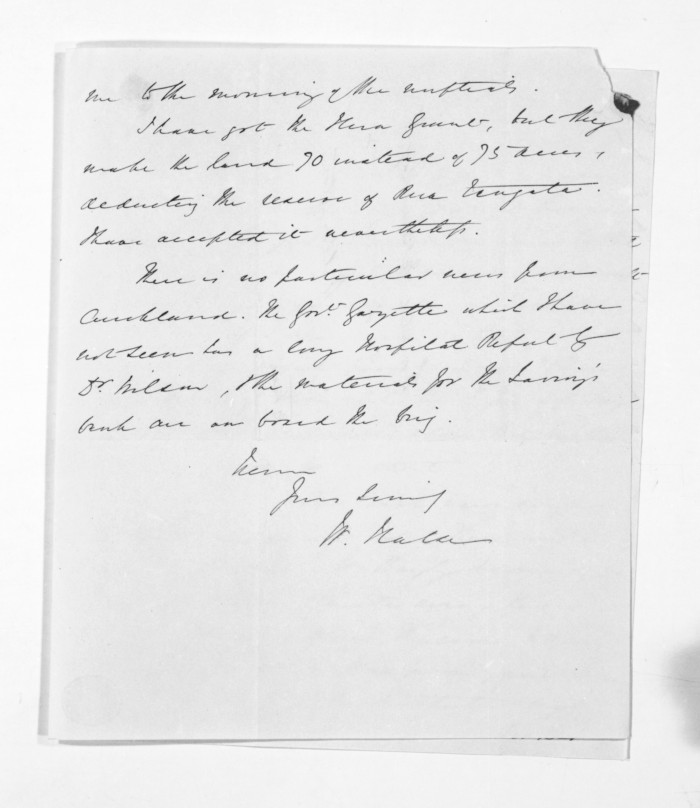 me to the morning of the nuptials.
I have got the Hera Grant, but they
make the land 70 instead of 75 acres,
deducting the reserve of Rua Tangata.
I have accepted it nevertheless.
There is no particular news from
Auckland. The Govt. Gazette which I have
not seen has a long Hospital Report by
Dr. Wilson, & the materials for the Saving's
bank are on board the brig.
Yours Sincly
W. Halse